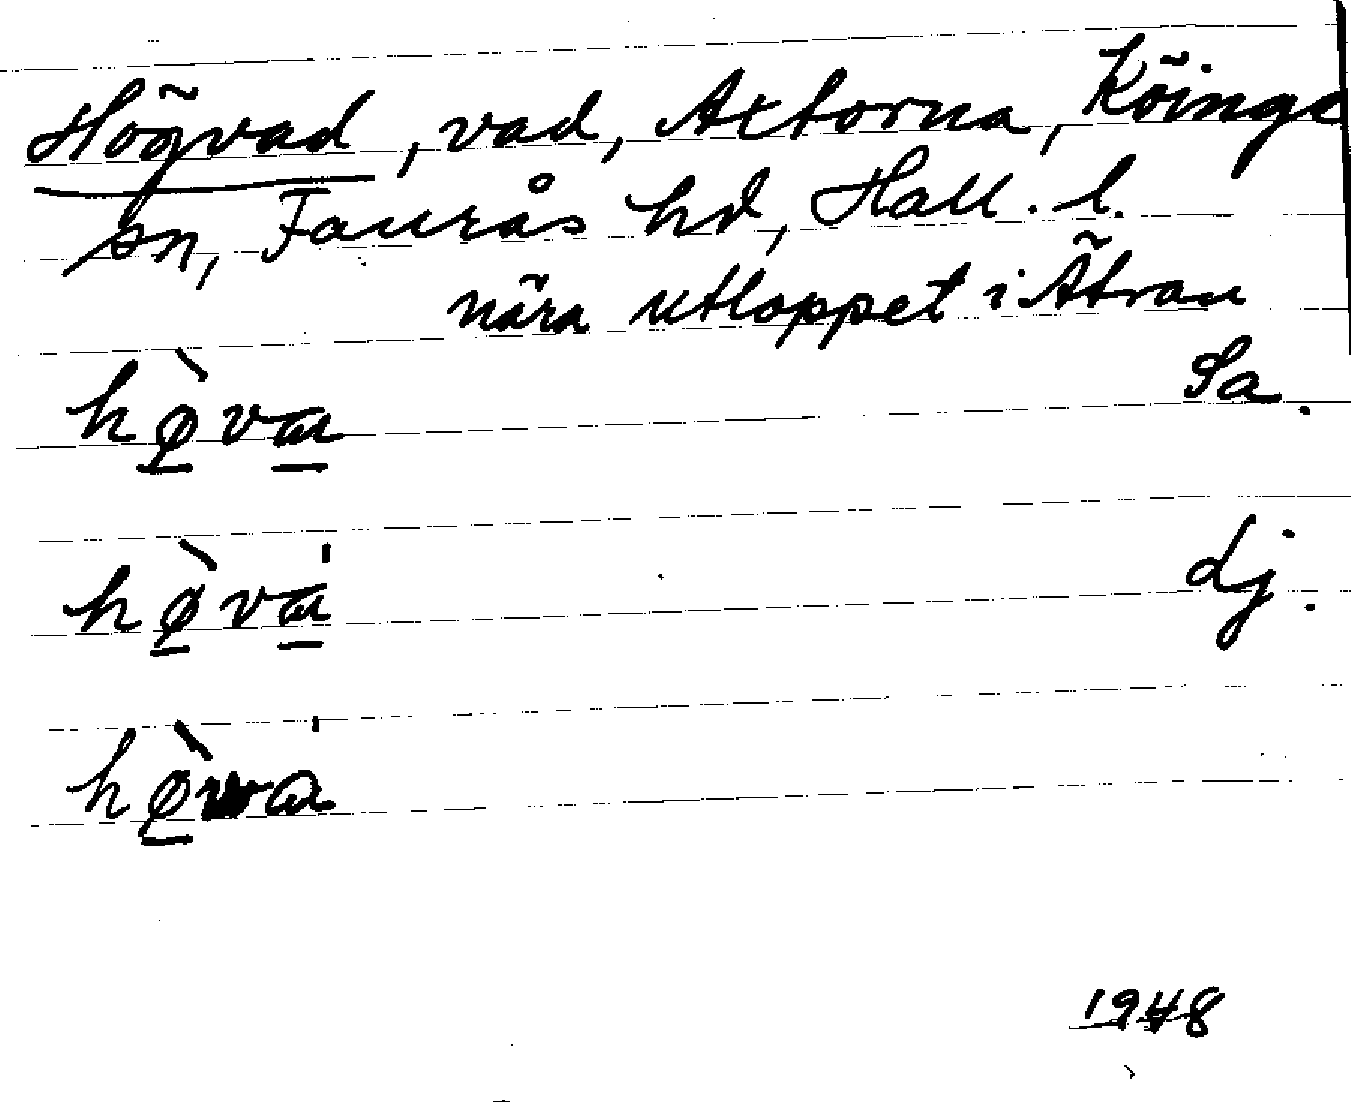 Högvad, vad, Attorna, Köinge
sn, Faurås hd, Hall. l.
nära utloppet i Ätran
hø̀va Sa.
hø̀va' Lj.
hø̀va'
1948